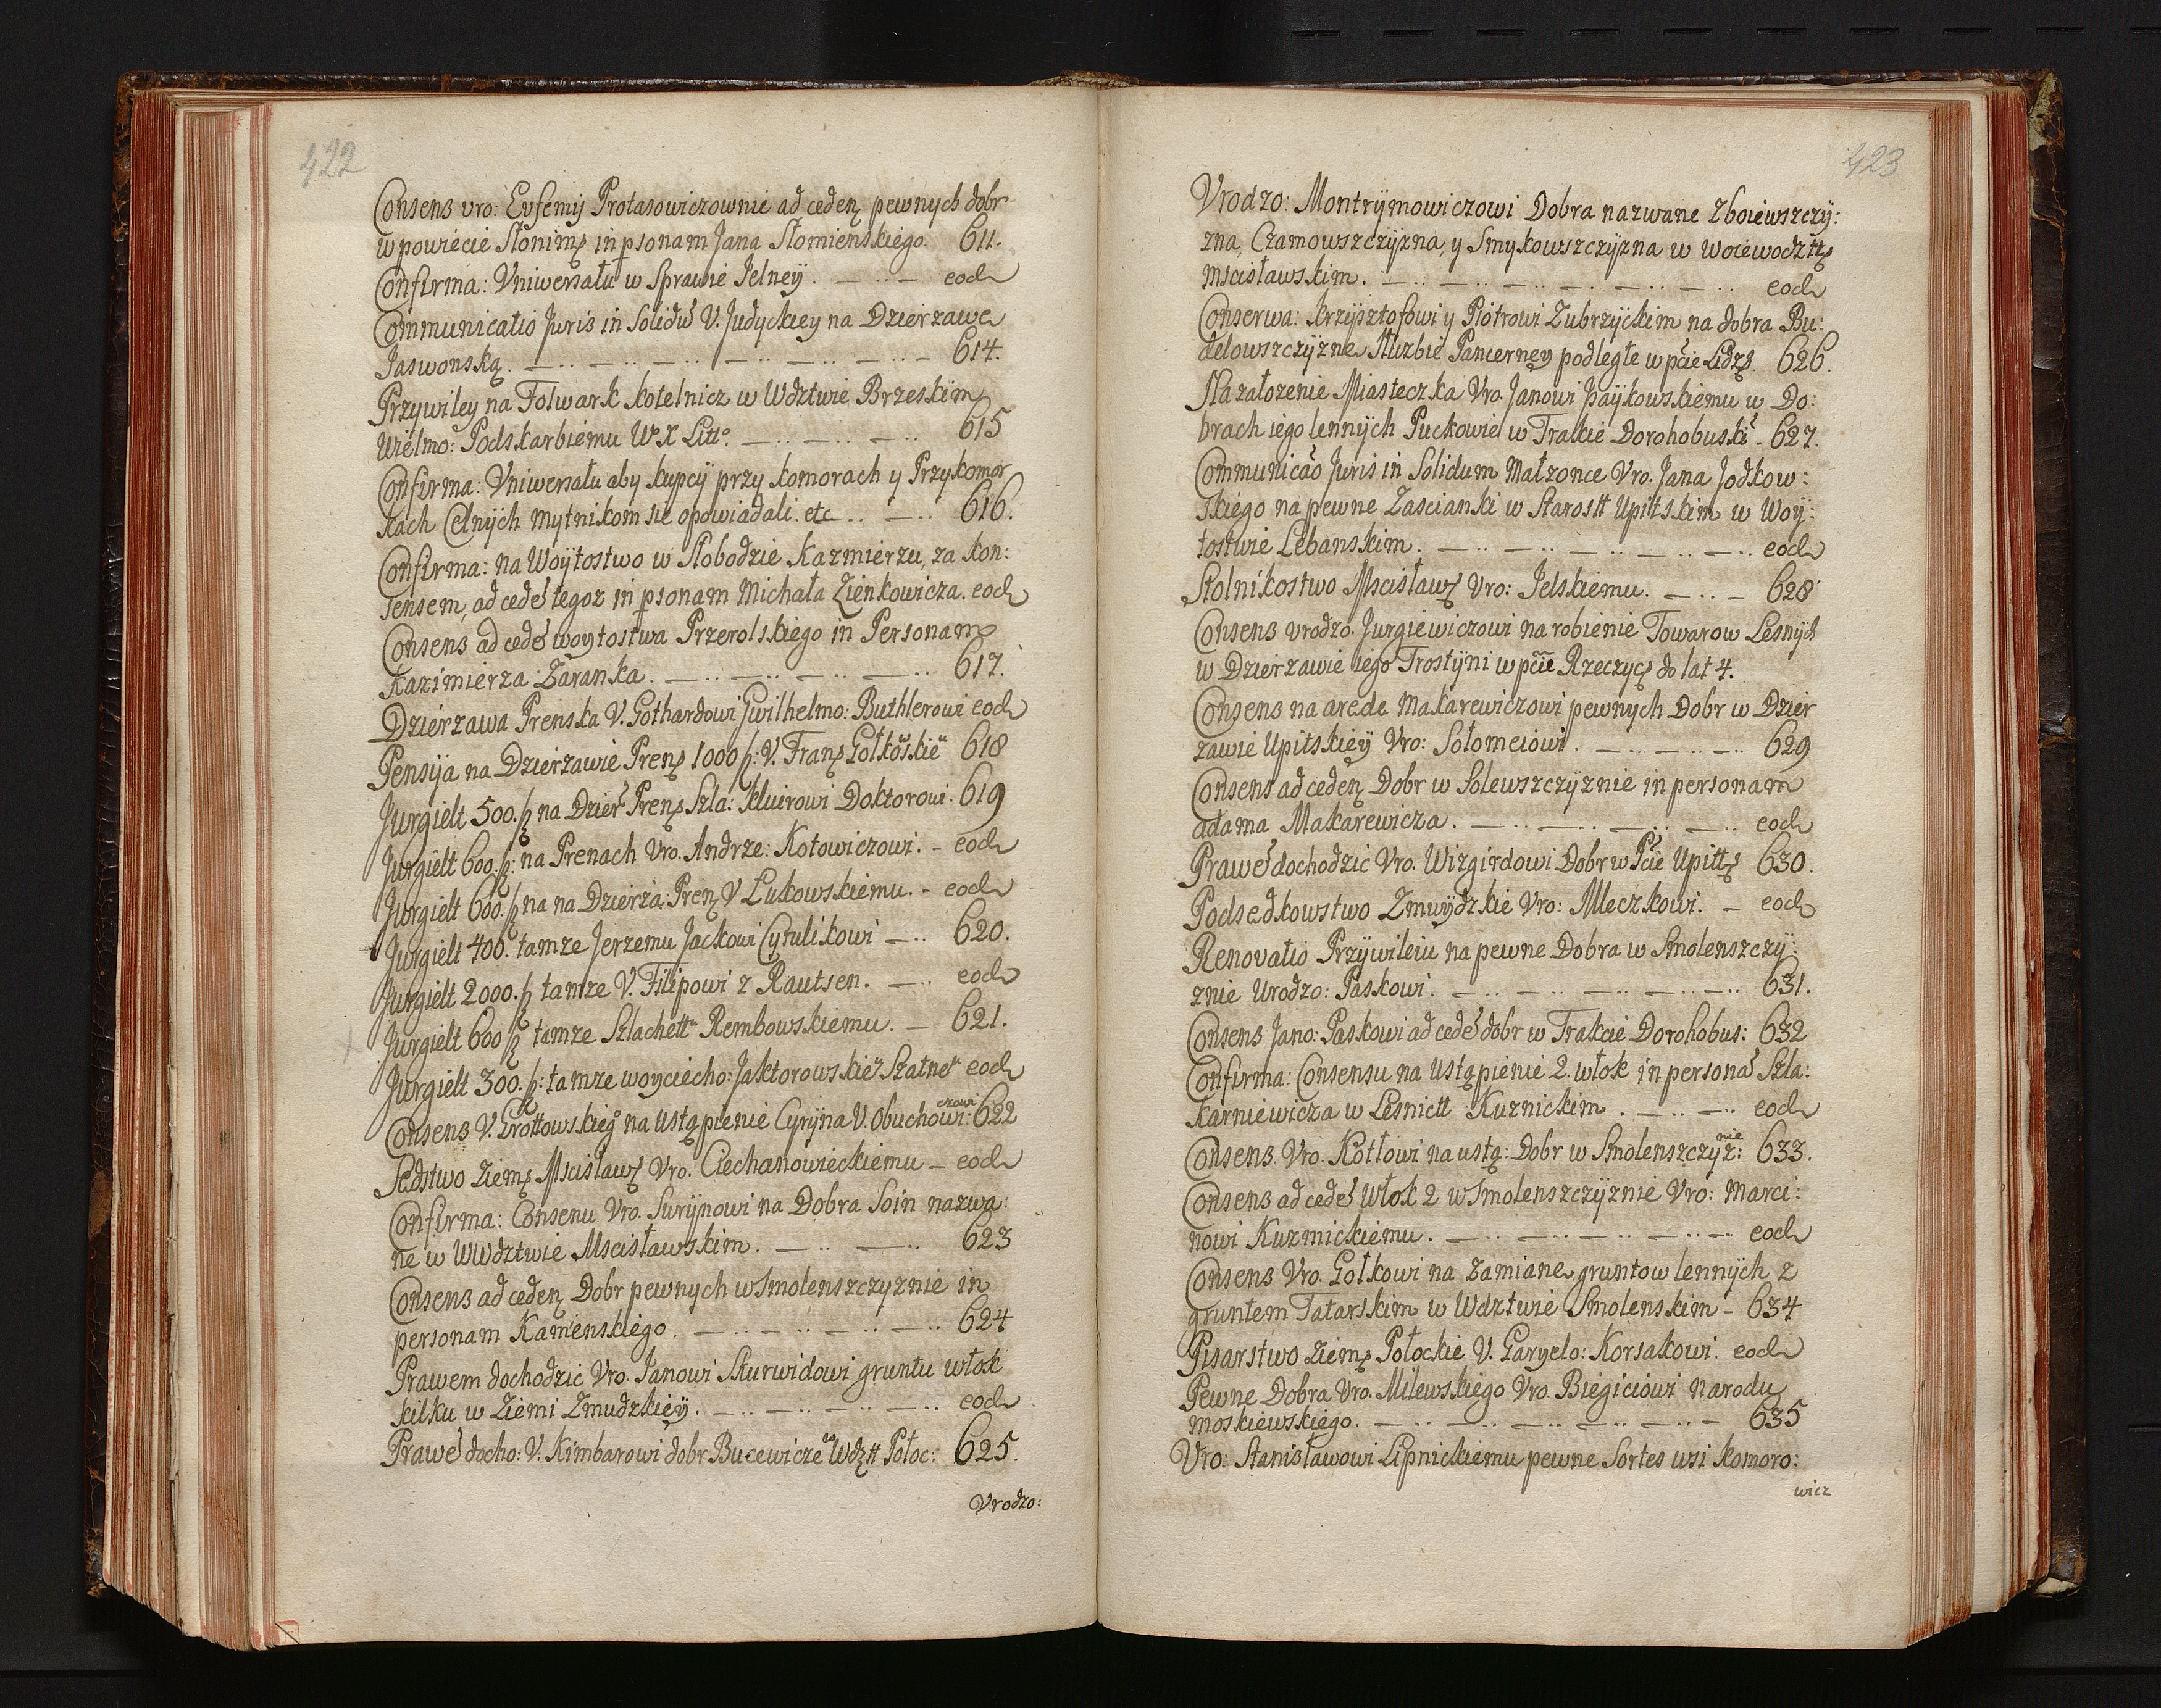 422
Consens vro: Eufemij Protasowiczownie ad ceden pewnych dobr
w powiecie Słonims in psonam Jana Słomienskiego 611.
Confirma: Vniwersału w Sprawie Jelneÿ. — .. — eod
Communicatio Juris in Solidu V. Judyckiey na Dzierzawe
Jaswonską. — .. — .. — .. — .. — .. — 614.
Przywiley na Folwark Kotelnicz w Wdztwie Brzeskim
Wielmo: Podskarbiemu WX Litto. — .. — .. — .. 615
Confirma: Vniwersału aby kupcÿ przy Komorach y Przykomor
kach Celnÿch Mytnikom sie opowiadali. etc .. — .. 616.
Confirma: na Woÿtostwo w Słobodzie Kazmierzu, za Kon:
sensem, ad cede tegoz in psonam Michała Zienkowicza. eod
Consens ad cede woytostwa Przerolskiego in Personam
Kazimierza Zaranka. — .. — .. — .. — .. 617.
Dzierzawa Prenska V. Gothardowi Wilhelmo: Buthlerowi eod
Pensÿa na Dzierzawie Prens 1000 V. Frans Gołkoskie 618
Jurgielt 500. na Dzier Prens Szla: Kluirowi Doktorowi. 619
Jurgielt 600. na Prenach Vro. Andrze: Kotowiczowi. - eod
Jurgielt 600. na na Dzierża: Pren V Lukowskiemu. - eod
Jurgielt 400. tamze Jerzemu Jackowi Cytulikowi — .. 620.
Jurgielt 2000. tamze V. Filipowi z Rautsen. — .. eod
Jurgielt 600 tamze Szlachett Rembowskiemu. — 621.
Jurgielt 300. tamze woyciecho: Jaktorowskie Szatne eod
Consens V. Grottowskieg na ustąpienie Cyrÿna V. Obuchowi: czowi 622
Sędstwo Ziems Mscisławs Vro. Ciechanowieckiemu — eod
Confirma: Consenu Vro. Surÿnowi na Dobra Soin nazwa:
ne w WWdztwie Mscisławskim. — .. — .. 623
Consens ad ceden Dobr pewnych w Smolenszczyznie in
personam Kamenskiego. — .. — .. — .. — .. 624
Prawem dochodzic Vro. Janowi Skurwidowi gruntu włok
kilku w Ziemi Zmudzkieÿ. — .. — .. — .. — .. eod
Prawe docho: V. Kimbarowi dobr Bucewicze w Wdztt Połoc: 625.
Vrodzo:
423
Vrodzo: Montrÿmowiczowi Dobra nazwane Zboiewszczÿ:
zna, Czamowszczÿzna, y Smykowszczÿzna w Woiewodztts
Mscisławskim. — .. — .. — .. — .. — .. eod
Conserwa: Krzÿsztofowi y Piotrowi Zubrzÿckim na dobra Bu:
delowszczÿzne Słuzbie Pancerneÿ podległe w pcie Lidzs. 626.
Na załozenie Miasteczka Vro. Janowi Paÿkowskiemu w Do:
brach iego lennÿch Puckowie w Trakcie Dorohobuski. 627.
Communicao Juris in Solidum Małzonce Vro. Jana Jodkow:
skiego na pewne Zascianki w Starostt Upittskim w Woÿ:
tostwie Lebanskim. — .. — .. — .. — .. — .. eod
Stolnikostwo Mscisławs Vro: Jelskiemu. — .. — 628
Consens vrodzo. Jurgiewiczowi na robienie Towarow Lesnÿch
w Dzierzawie iego Trostÿni w pcie Rzeczyc do lat 4.
Consens na arede Makarewiczowi pewnych Dobr w Dzier
zawie Upitskieÿ Vro: Sołomeiowi. — .. — .. — .. 629
Consens ad ceden Dobr w Solewszczÿznie in personam
adama Makarewicza. — .. — .. — .. — .. eod
Prawe dochodzic Vro. Wizgirdowi Dobr w Pcie Upitts 630.
Podsedkowstwo Zmuÿdzkie Vro: Mleczkowi. — eod
Renovatio Przÿwileiu na pewne Dobra w Smolenszczÿ:
znie Urodzo: Paskowi. — .. — .. — .. — .. 631.
Consens Jano: Paskowi ad cede dobr w Trakcie Dorohobus: 632
Confirma: Consensu na Ustąpienie 2. włok in persona Szla:
Karniewicza w Lesnictt Kuznickim. — .. — .. eod
Consens. Vro. Kotłowi na ustą: Dobr w Smolenszczÿz: nie 633.
Consens ad cede Włok 2 w Smolenszczÿznie Vro: Marci:
nowi Kuzmickiemu. — .. — .. — .. — .. eod
Consens Vro. Gołkowi na zamiane gruntow lennÿch z
gruntem Tatarskim w Wdztwie Smolenskim — 634
Pisarstwo Ziems Połockie V. Garyelo: Korsakowi. eod
Pewne Dobra Vro. Milewskiego Vro. Biegiciowi Narodu
moskiewskiego. — .. — .. — .. — .. — 635
Vro: Stanisławowi Lipnickiemu pewne Sortes wsi Komoro:
wicz